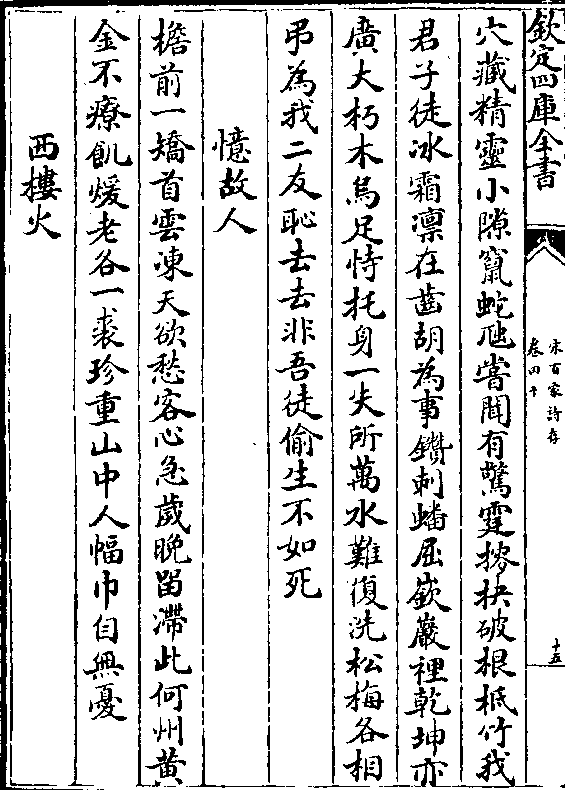 欽定四庫全書
宋百家詩存
卷四十
十五
穴藏精靈小隙竄蛇虺嘗聞有驚霆撈抉破根柢竹我
君子徒冰霜凛在齒胡為事鑽刺蟠屈嵌巖裡乾坤亦
廣大朽木烏足恃托身一失所萬水難復洗松梅各相
弔為我二友恥去去非吾徒偷生不如死
憶故人
檐前一矯首雲凍天欲愁客心急歲晚留滯此何州黄
金不療飢煖老各一裘珍重山中人幅巾自無憂
西摟火